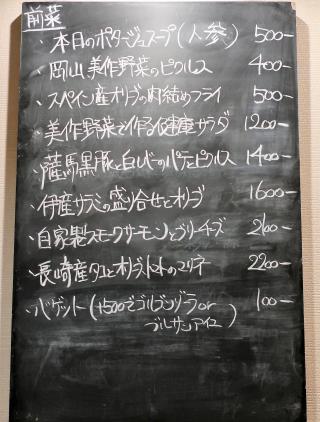 前菜
・本日のポタージュスープ(人参) 500-
・岡山、美作野菜のピクルス 400-
・スペイン産オリーブの肉詰めフライ 500-
・美作野菜で作る健康サラダ 1200-
・薩馬黒豚と白レバーのパテとピクルス 1400-
・伊産サラミの盛り合せとオリーブ 1600-
・自家製スモークサーモンとブリーチーズ
・長崎産タコとオリーブ、トマトのマリネ 2200-
・バゲット(+500でゴルゴンゾーラor 100-
ブルサンアイユ)